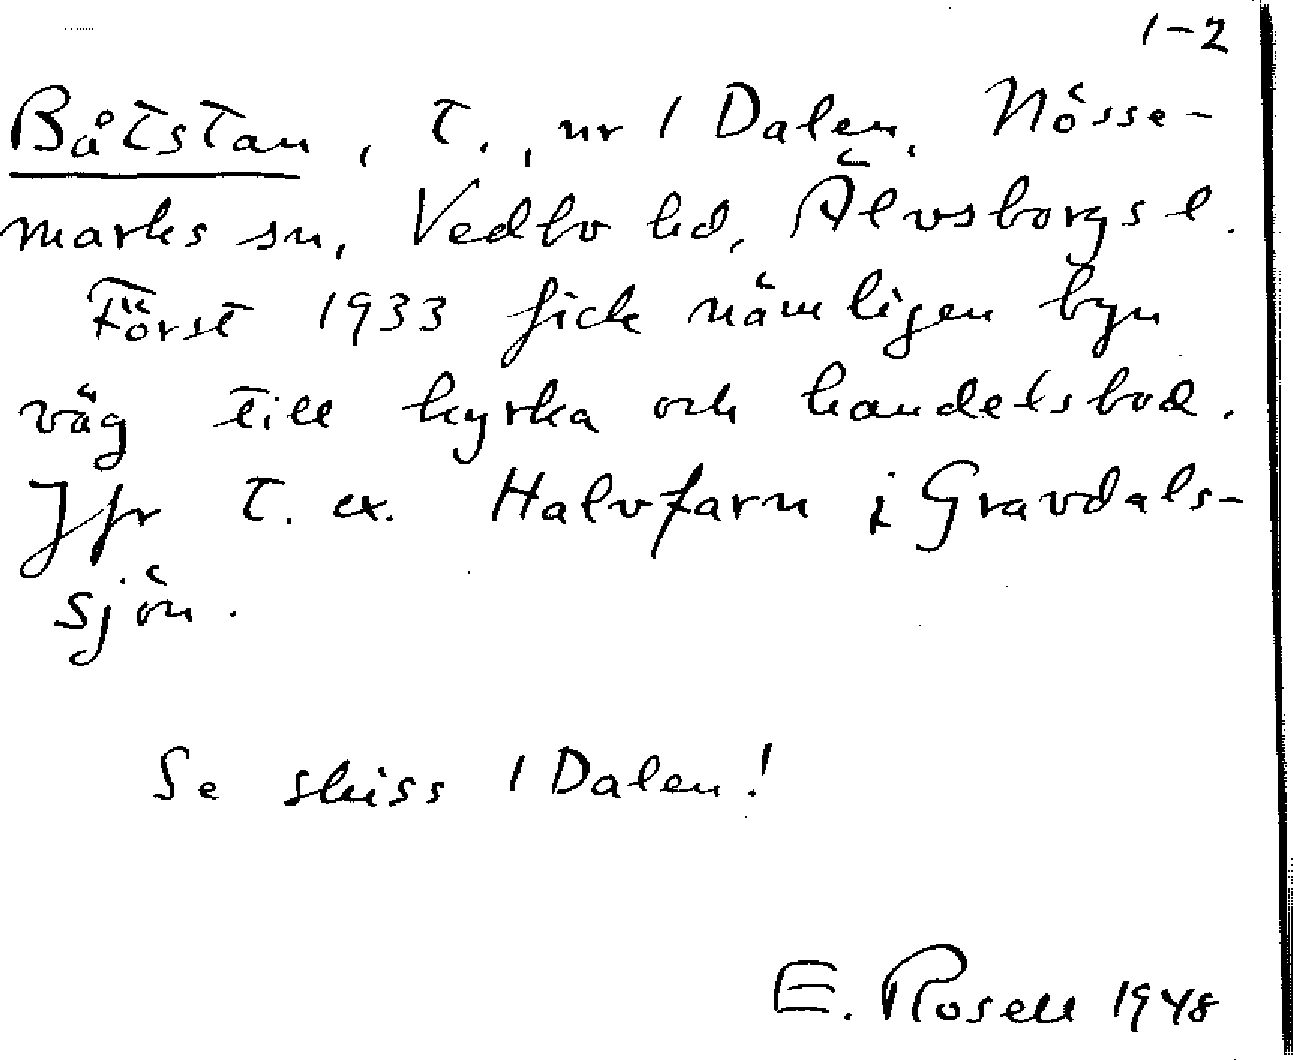 1-2
Båtstan, t., nr 1 Dalen, Nösse-
marks sn, Vedbo hd, Älvsborgs l.
Först 1933 fick nämligen byn
väg till kyrka och handelsbod.
Jfr t. ex. Halvfarn i Gravdals-
sjön.
Se skiss 1 Dalen!
E. Rosell 1948